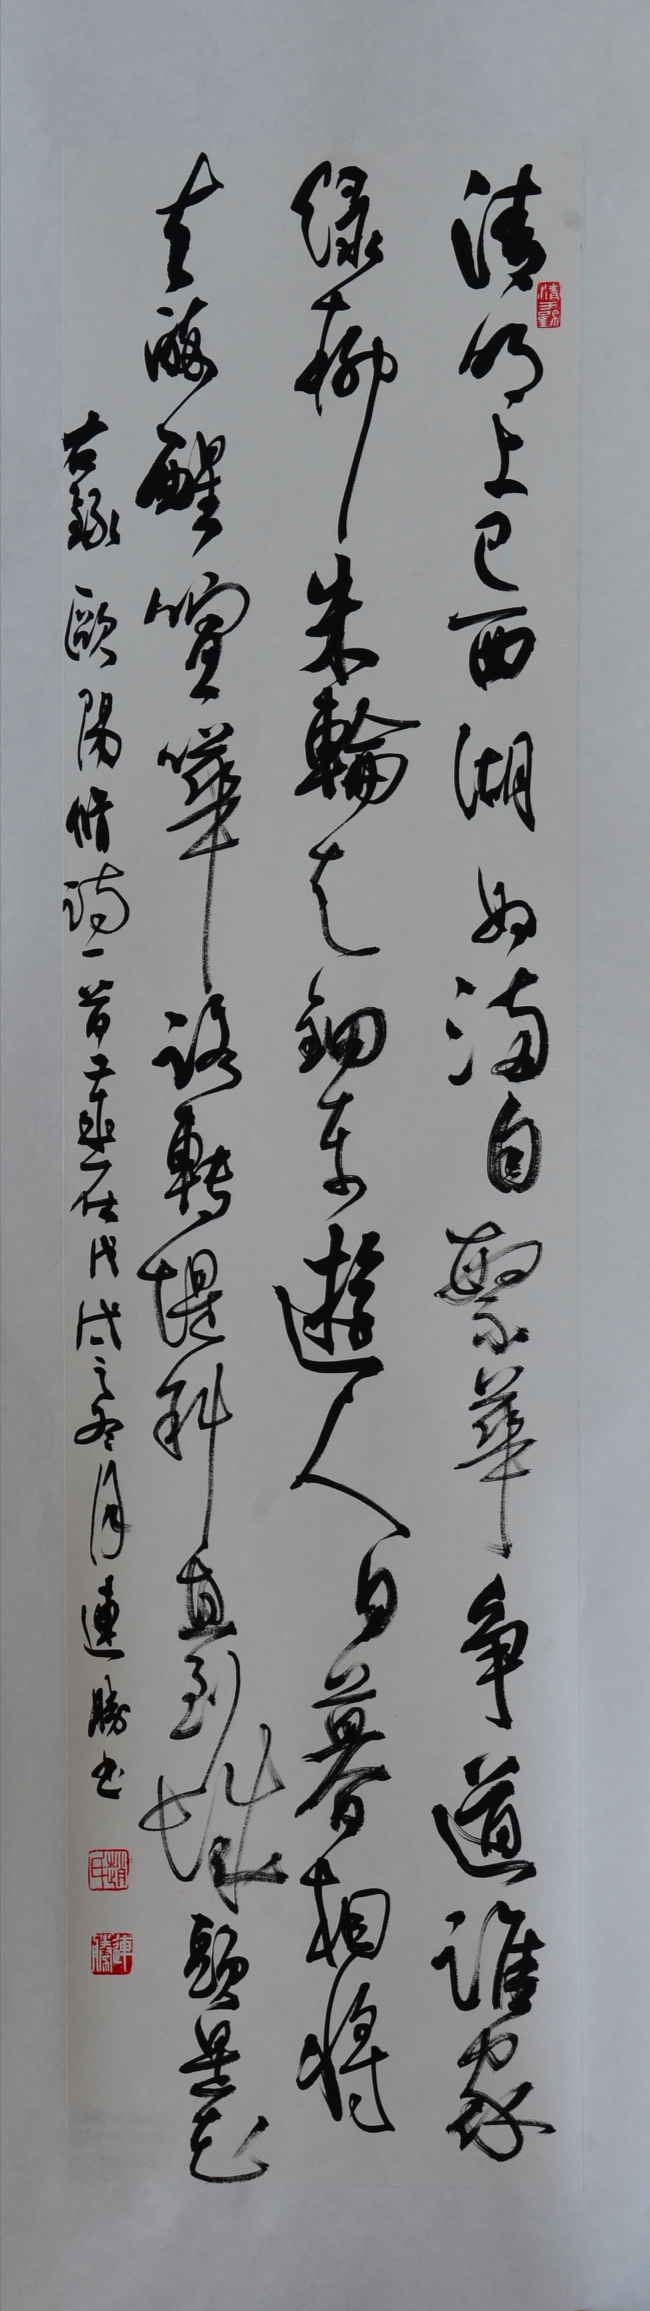 清明上巳西湖好滿自繁華爭道誰家
綠柳朱輪走鈿車遊人日暮相將
去醒喧嘩路轉堤斜直到城頭是花
右錄歐陽脩詩一首歲在戊戌之冬月連勝書
連勝